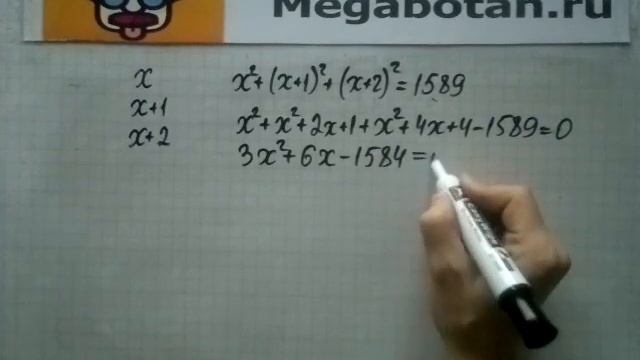 Megabotan.ru
x
x²+(x+1)²+(x+2)²=1589
x+1
x²+x²+2x+1+x²+4x+4-1589=0
x+2
3x²+6x-1584=